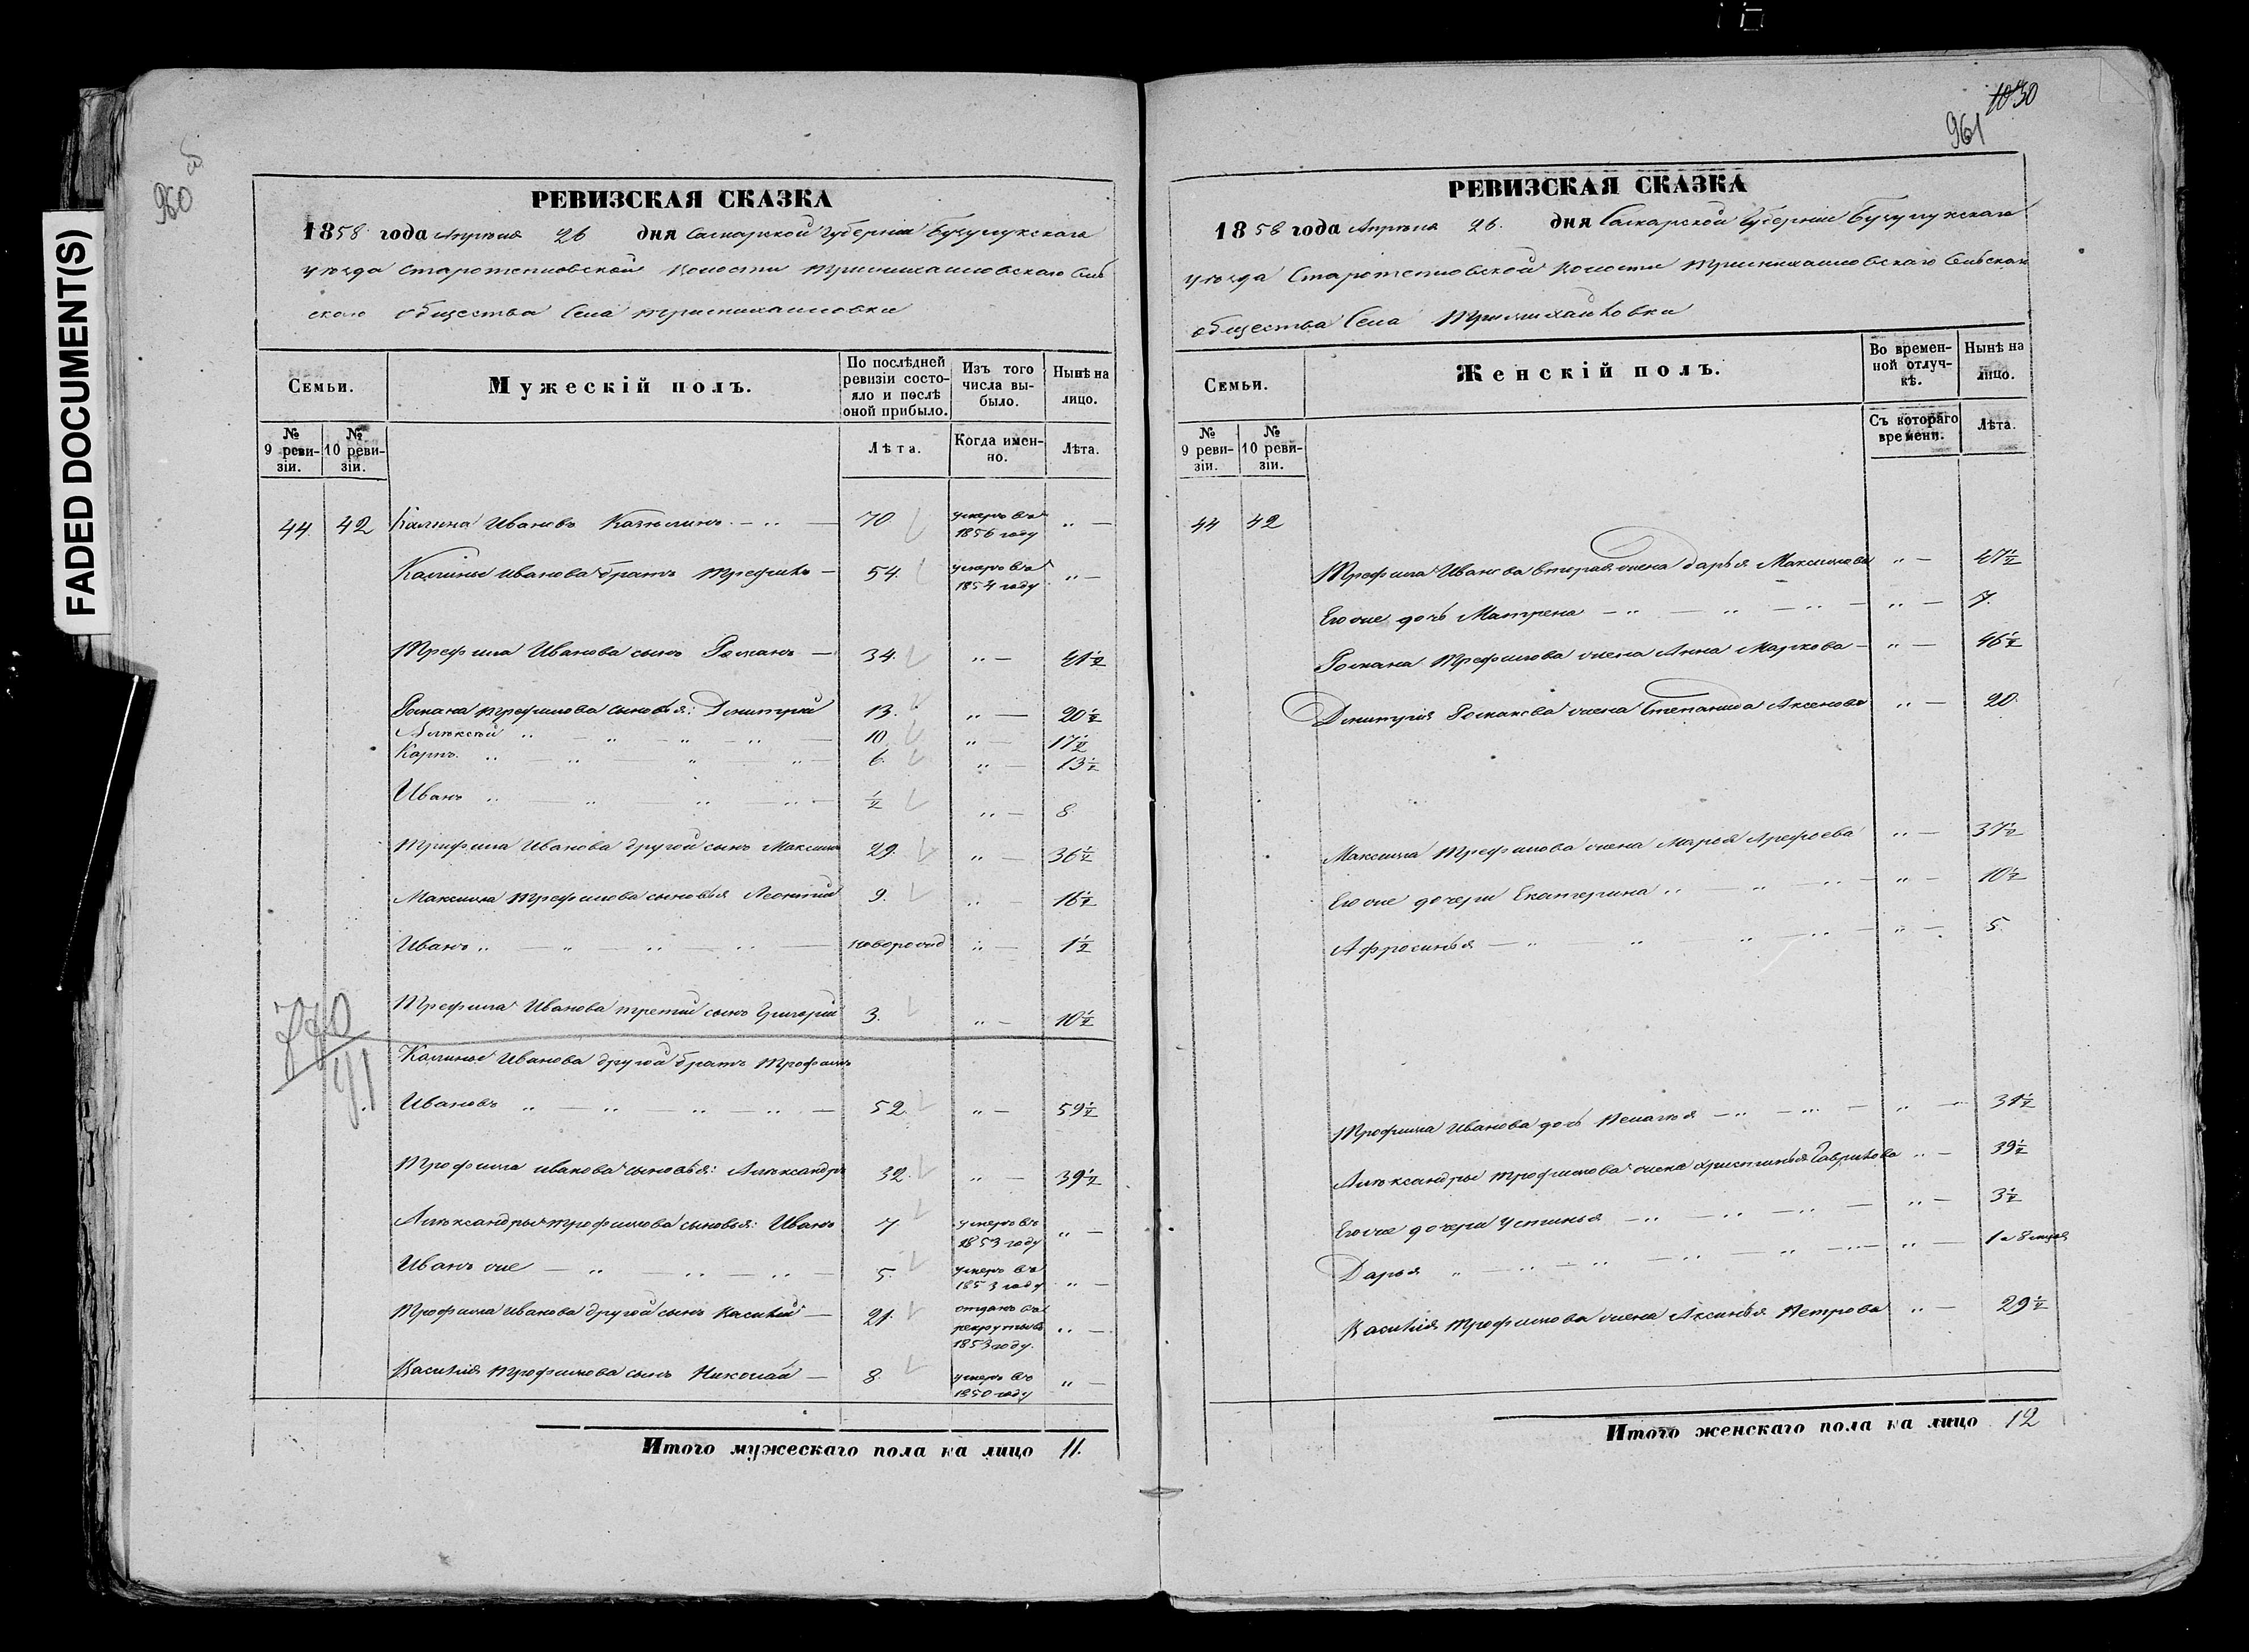 FADED DOCUMENT(S)
960 об
РЕВИЗСКАЯ СКАЗКА
1858 года Апреля 26 дня Самарской Губернии Бузулукского
уезда Старотепловской волости Тримихаиловского Сель
ского общества Села Тримихаиловки
Семьи. Мужескій полъ. По послѣдней ревизіи состояло и послѣ оной прибыло. Изъ того числа выбыло. Нынѣ на лицо.
№ 9 ревизіи. № 10 ревизіи. Лѣта. Когда именно. Лѣта.
44. 42 Калина Ивановъ 70 умеръ въ 1856 году „ —
Калины Иванова братъ Трефилъ — 54. умеръ въ 1854 году „ —
Трефила Иванова сынъ Романъ — 34. „ — 41½
Романа Трефилова сыновья: Дмитрій 13. „ — 20½
Алексѣй „ — „ — „ — „ — 10 „ — 17½
Карпъ. „ — „ — „ — „ — 6. „ — 13½
Иванъ „ — „ — „ — „ — ½ „ — 8.
Трифила Иванова другой сынъ Максимъ 29. „ — 36½
Максима Трефилова сыновья Леонтий 9. „ — 16½
Иванъ „ — „ — „ — „ — новорожд „ — 1½
Трефила Иванова третий сынъ Григорій 3. „ — 10½
Калины Иванова другой братъ Трофимъ
Ивановъ „ — „ — „ — „ — 52. „ — 59½
Трофима Иванова сыновья: Александръ 32. „ — 39½
Александры Трофимова сыновья: Иванъ 7 умеръ въ 1853 году „ —
Иванъ же — „ — „ — „ — 5. умеръ въ 1853 году „ —
Трофима Иванова другой сынъ Василий — 21. отданъ въ рекруты въ 1853 году. „ —
Василия Трофимова сынъ Николай — 8 умеръ въ 1850 году „ —
Итого мужескаго пола на лицо 11.
1030
961
РЕВИЗСКАЯ СКАЗКА
1858 года Апреля 26. дня Самарской Губернии Бузулукского
уезда Старотепловской волости Тримихаиловского Сельского
общества Села Тримихаиловки
Семьи. Женскій полъ. Во временной отлучкѣ. Нынѣ на лицо.
№ 9 ревизіи. № 10 ревизіи. Съ котораго времени. Лѣта.
44 42
Трефила Иванова вторая жена Дарья Максимова „ — 47½
Его же дочь Матрена — „ — „ — „ — „ — 7.
Романа Трефилова жена Анна Маркова — „ — 46½
Дмитрия Романова жена Степанида Аксенова „ — 20.
Максима Трефилова жена Марья Арефьева „ — 37½
Его же дочери Екатерина „ — „ — „ — „ — 10½
Афросинья — „ „ „ — „ — „ — 5.
Трофима Иванова дочь Пелагея — „ — „ — „ — 31½
Александры Трофимова жена Христинья Гаврилова „ — 39½
Его же дочери Устинья — „ — „ — „ — „ — 3½
Дарья „ — „ — „ — „ — „ — „ — „ — 1 и 8 месяц
Василия Трофимова жена Аксинья Петрова „ — 29½
Итого женскаго пола на лицо 12